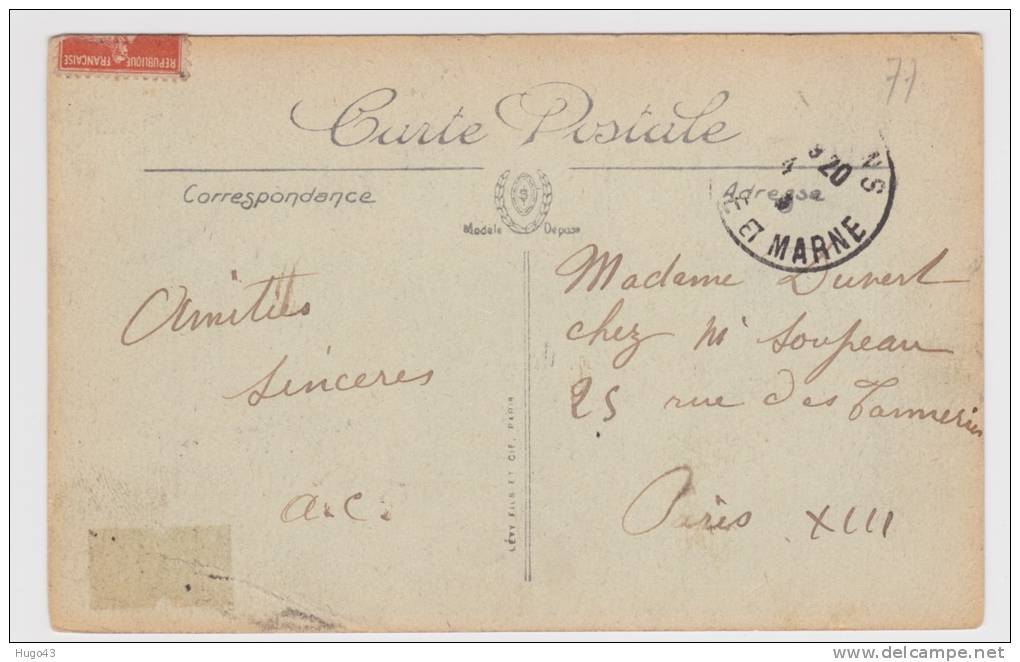 REPUBLIQUE FRANÇAISE
71
Carte Postale
Correspondance
Adresse
Modèle Déposé
20
NS
ET MARNE
Amitiés
sinceres
a.c.
Madame Duvert
chez Mr Soupeau
25 rue des Tanneries
Paris XIII
LÉVY FILS ET CIE, PARIS
Hugo43